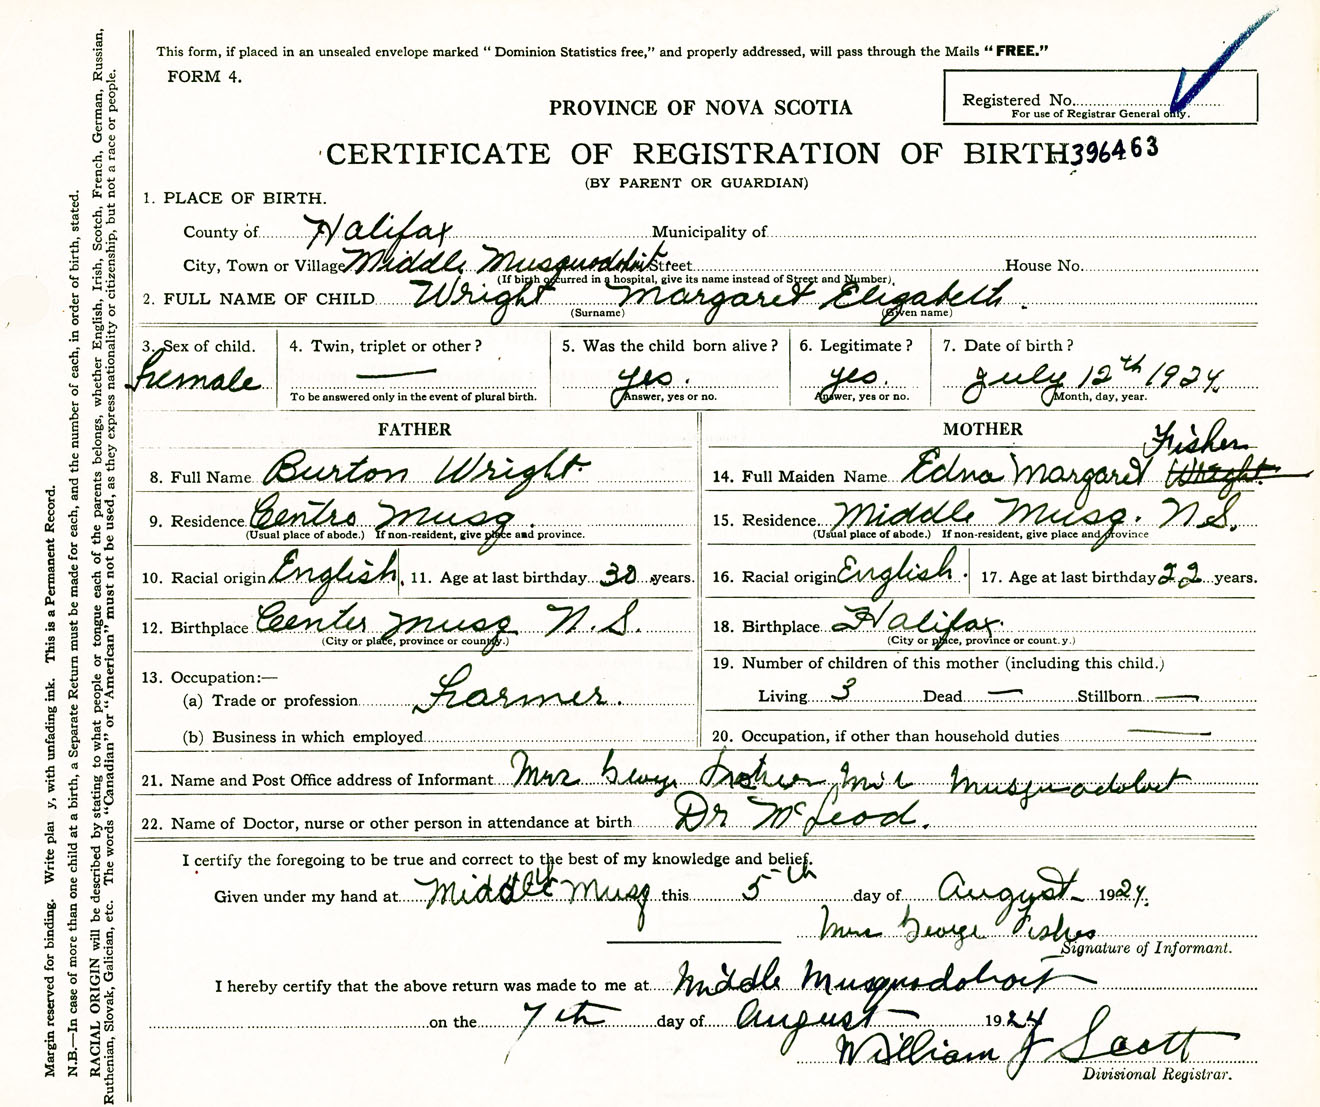 This form, if placed in an unsealed envelope marked " Dominion Statistics free," and properly addressed, will pass through the Mails " FREE."
FORM 4.
Registered No.
For use of Registrar General only.
PROVINCE OF NOVA SCOTIA
CERTIFICATE OF REGISTRATION OF BIRTH 396463
(BY PARENT OR GUARDIAN)
1. PLACE OF BIRTH.
County of Halifax Municipality of
City, Town or Village Middle Musquodoboit Street House No.
(If birth occurred in a hospital, give its name instead of Street and Number).
2. FULL NAME OF CHILD Wright Margaret Elizabeth.
(Surname) (Given name)
3. Sex of child. 4. Twin, triplet or other? 5. Was the child born alive? 6. Legitimate? 7. Date of birth?
Female — yes. yes. July 12th 1924.
To be answered only in the event of plural birth. Answer, yes or no. Answer, yes or no. Month, day, year.
FATHER
8. Full Name Burton Wright.
9. Residence Centre Musq.
(Usual place of abode.) If non-resident, give place and province.
10. Racial origin English. 11. Age at last birthday 30 years.
12. Birthplace Center Musq N.S.
(City or place, province or country.)
13. Occupation:—
(a) Trade or profession Farmer.
(b) Business in which employed
MOTHER
Fisher
14. Full Maiden Name Edna Margaret Wright.
15. Residence Middle Musq. N.S.
(Usual place of abode.) If non-resident, give place and province
16. Racial origin English. 17. Age at last birthday 22 years.
18. Birthplace Halifax.
(City or place, province or count.y.)
19. Number of children of this mother (including this child.)
Living 3 Dead — Stillborn —
20. Occupation, if other than household duties —
21. Name and Post Office address of Informant Mrs George Fisher Mid Musquodoboit
22. Name of Doctor, nurse or other person in attendance at birth Dr McLeod.
I certify the foregoing to be true and correct to the best of my knowledge and belief.
Given under my hand at Middle Musq this 5th day of August 1924.
Mrs George Fisher
Signature of Informant.
I hereby certify that the above return was made to me at Middle Musquodoboit
on the 7th day of August 1924
William J Scott
Divisional Registrar.
Margin reserved for binding. Write plai y, with unfading ink. This is a Permanent Record.
N.B.—In case of more than one child at a birth, a Separate Return must be made for each, and the number of each, in order of birth, stated.
RACIAL ORIGIN will be described by stating to what people or tongue each of the parents belongs, whether English, Irish, Scotch, French, German, Russian,
Ruthenian, Slovak, Galician, etc. The words "Canadian" or "American" must not be used, as they express nationality or citizenship, but not a race or people.